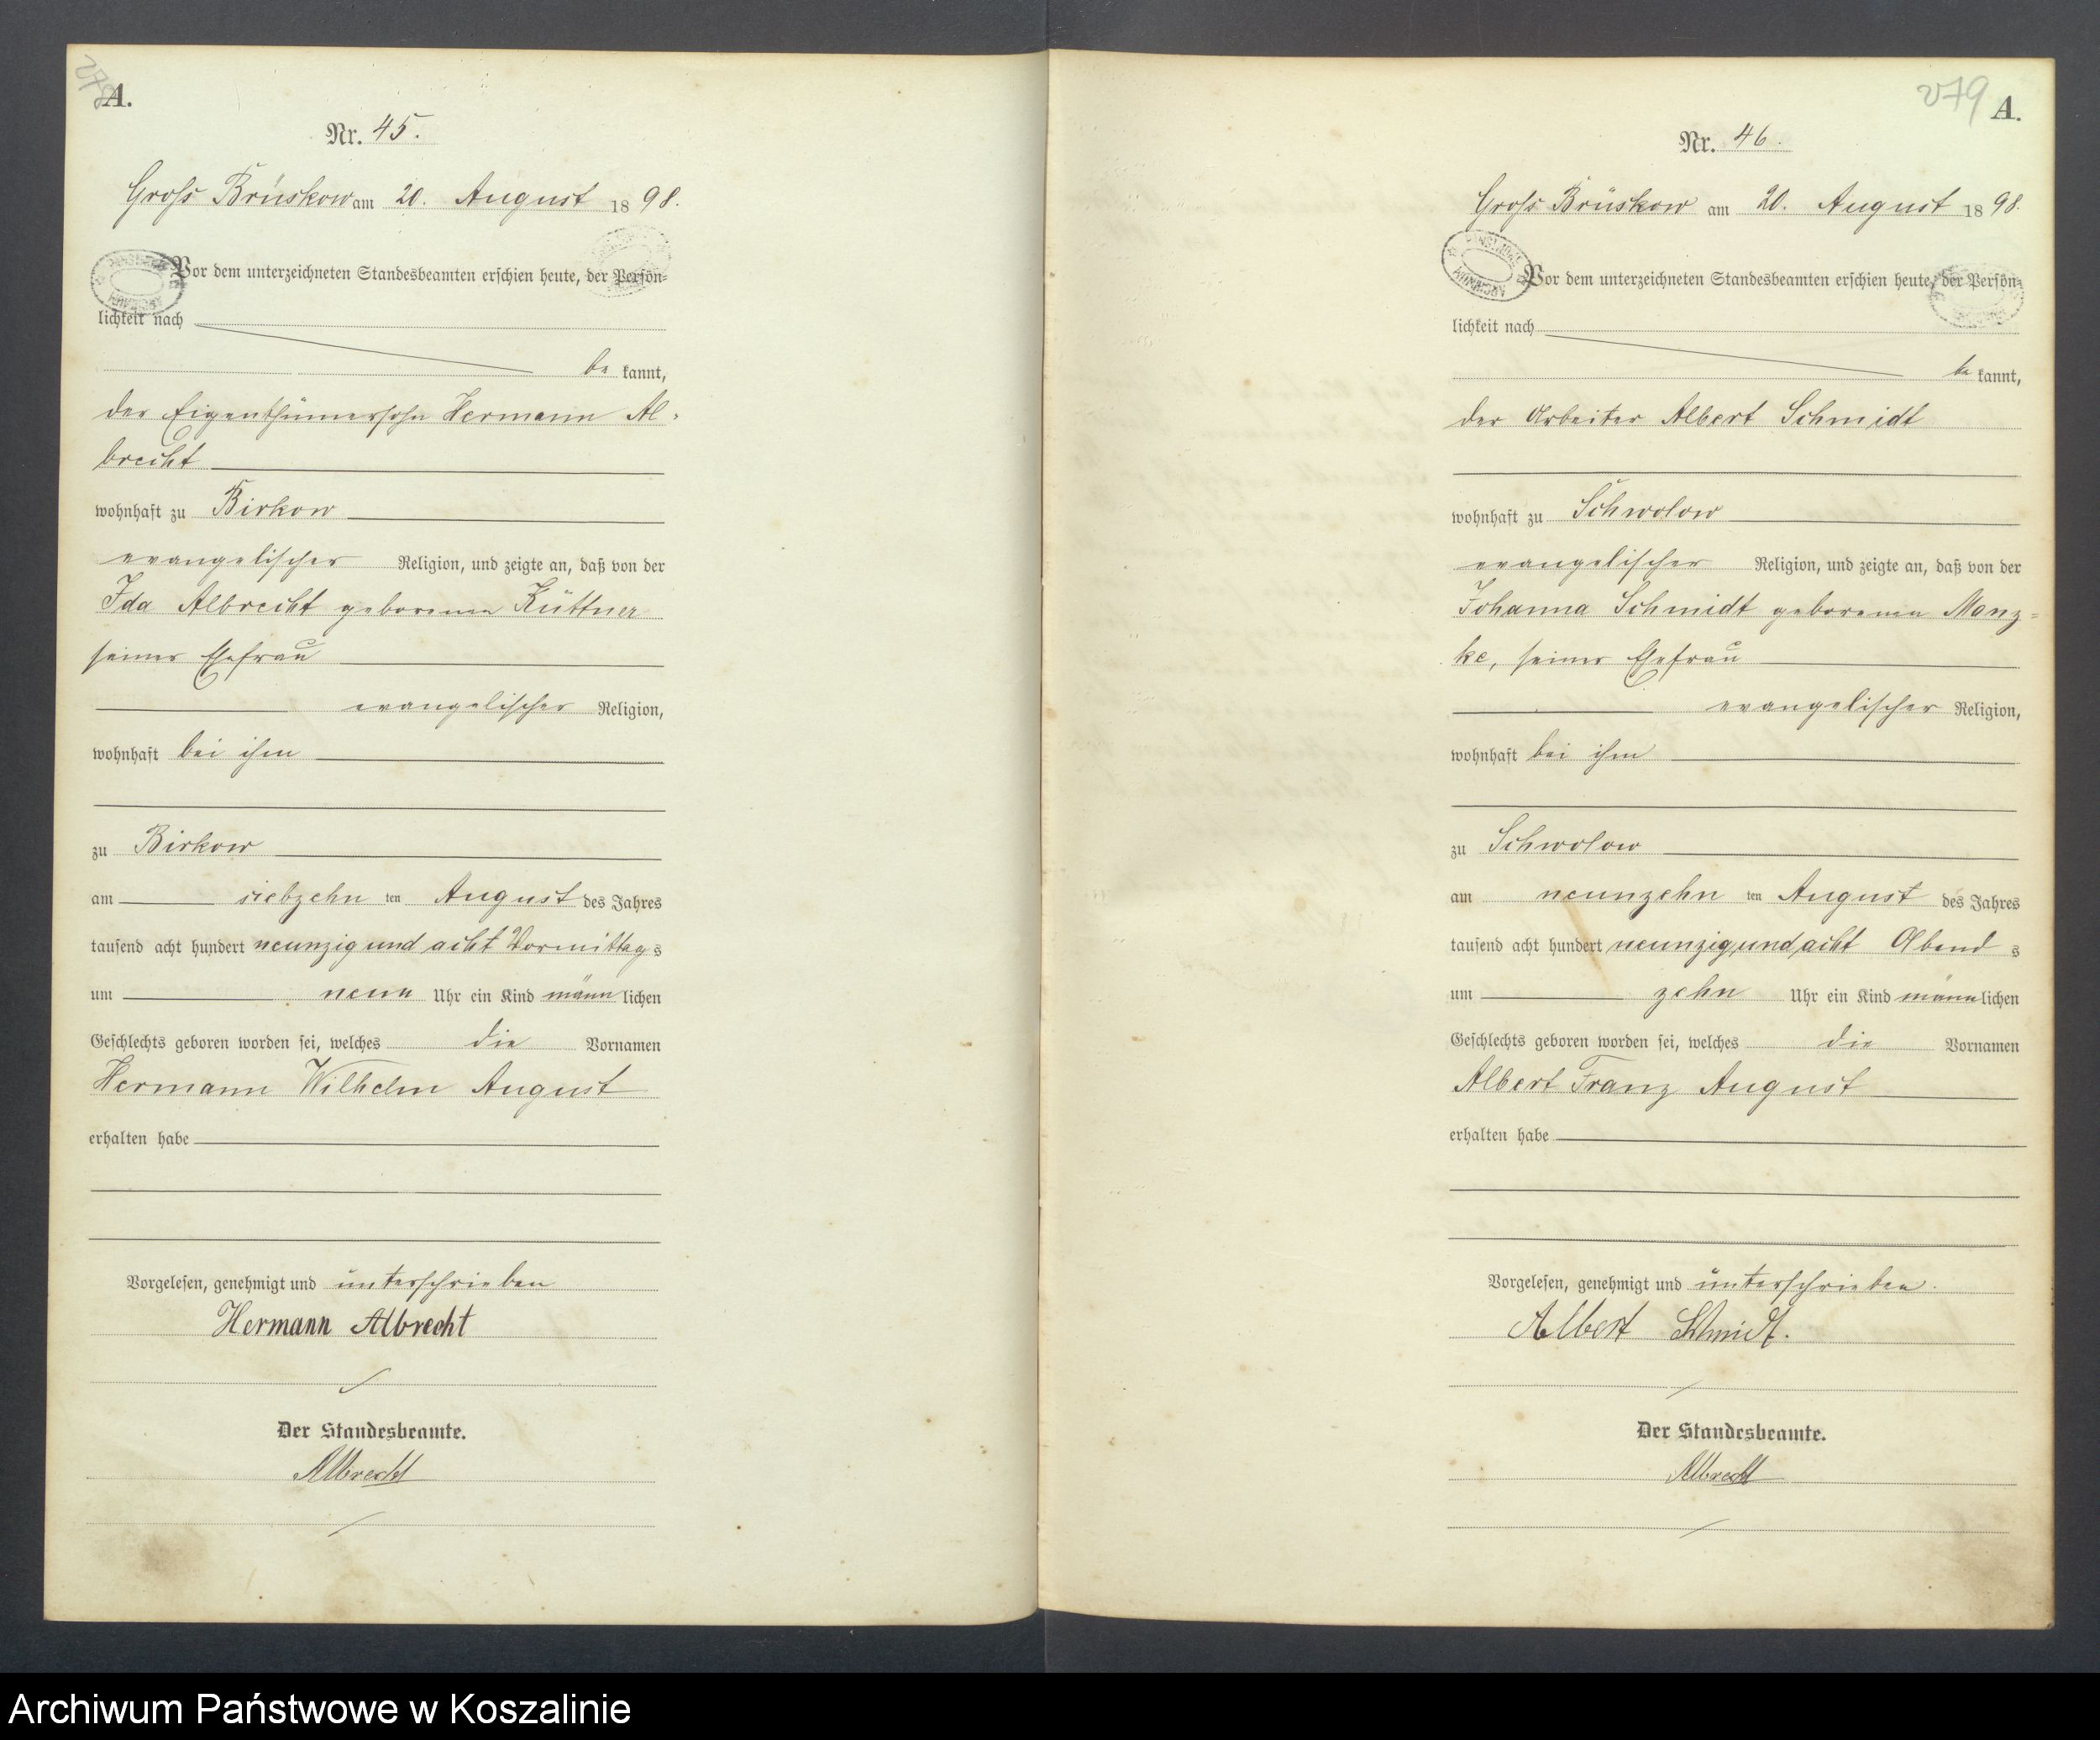 278
A.
Nr. 45.
Gross Brüskow am 20. August 1898.
Vor dem unterzeichneten Standesbeamten erschien heute, der Persön-
lichkeit nach
be kannt,
der Eigenthümersohn Hermann Al-
brecht
wohnhaft zu Birkow
evangelischer Religion, und zeigte an, daß von der
Ida Albrecht geborenen Küttner
seiner Ehefrau
evangelischer Religion,
wohnhaft bei ihm
zu Birkow
am siebzehn ten August des Jahres
tausend acht hundert neunzig und acht Vormittag s
um neun Uhr ein Kind männ lichen
Geschlechts geboren worden sei, welches die Vornamen
Hermann Wilhelm August
erhalten habe
Vorgelesen, genehmigt und unterschrieben
Hermann Albrecht
Der Standesbeamte.
Albrecht
279
A.
Nr. 46.
Gross Brüskow am 20. August 1898.
Vor dem unterzeichneten Standesbeamten erschien heute, der Persön-
lichkeit nach
be kannt,
der Arbeiter Albert Schmidt
wohnhaft zu Schwolow
evangelischer Religion, und zeigte an, daß von der
Johanna Schmidt geborenen Manz-
ke, seiner Ehefrau
evangelischer Religion,
wohnhaft bei ihm
zu Schwolow
am neunzehn ten August des Jahres
tausend acht hundert neunzig und acht Abend s
um zehn Uhr ein Kind männ lichen
Geschlechts geboren worden sei, welches die Vornamen
Albert Franz August
erhalten habe
Vorgelesen, genehmigt und unterschrieben.
Albert Schmidt.
Der Standesbeamte.
Albrecht
Archiwum Państwowe w Koszalinie